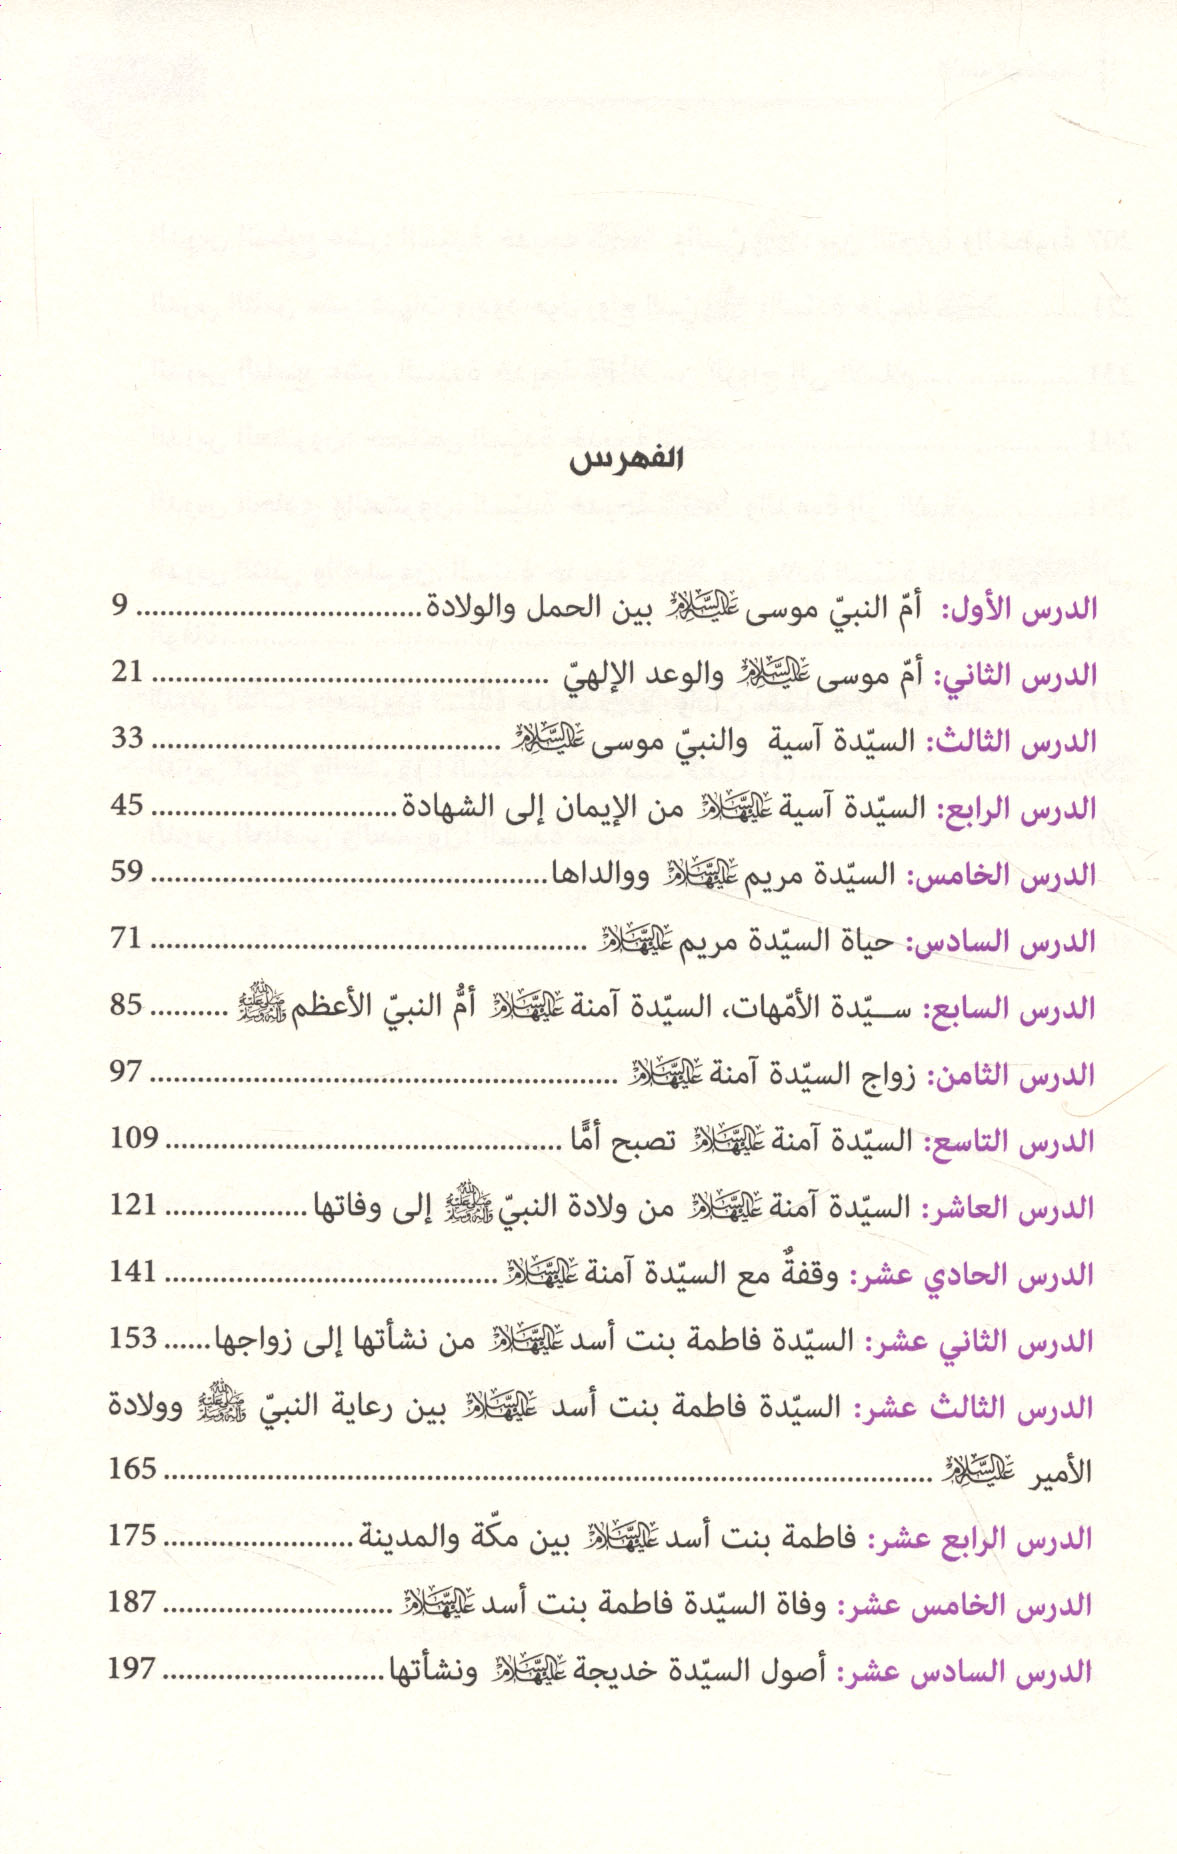 الفهرس
الدرس الأول: أمّ النبيّ موسى عليه السلام بين الحمل والولادة.................................... 9
الدرس الثاني: أمّ موسى عليه السلام والوعد الإلهيّ .................................................. 21
الدرس الثالث: السيّدة آسية والنبيّ موسى عليه السلام ............................................ 33
الدرس الرابع: السيّدة آسية عليها السلام من الإيمان إلى الشهادة............................... 45
الدرس الخامس: السيّدة مريم عليها السلام ووالداها.................................................. 59
الدرس السادس: حياة السيّدة مريم عليها السلام ....................................................... 71
الدرس السابع: سـيّدة الأمّهات، السيّدة آمنة عليها السلام أمُّ النبيّ الأعظم صلى الله عليه وآله وسلم .......... 85
الدرس الثامن: زواج السيّدة آمنة عليها السلام ........................................................... 97
الدرس التاسع: السيّدة آمنة عليها السلام تصبح أمًّا .................................................. 109
الدرس العاشر: السيّدة آمنة عليها السلام من ولادة النبيّ صلى الله عليه وآله وسلم إلى وفاتها.................. 121
الدرس الحادي عشر: وقفةٌ مع السيّدة آمنة عليها السلام .......................................... 141
الدرس الثاني عشر: السيّدة فاطمة بنت أسد عليها السلام من نشأتها إلى زواجها...... 153
الدرس الثالث عشر: السيّدة فاطمة بنت أسد عليها السلام بين رعاية النبيّ صلى الله عليه وآله وسلم وولادة
الأمير عليه السلام ................................................................................................. 165
الدرس الرابع عشر: فاطمة بنت أسد عليها السلام بين مكّة والمدينة........................ 175
الدرس الخامس عشر: وفاة السيّدة فاطمة بنت أسد عليها السلام ............................. 187
الدرس السادس عشر: أصول السيّدة خديجة عليها السلام ونشأتها............................ 197